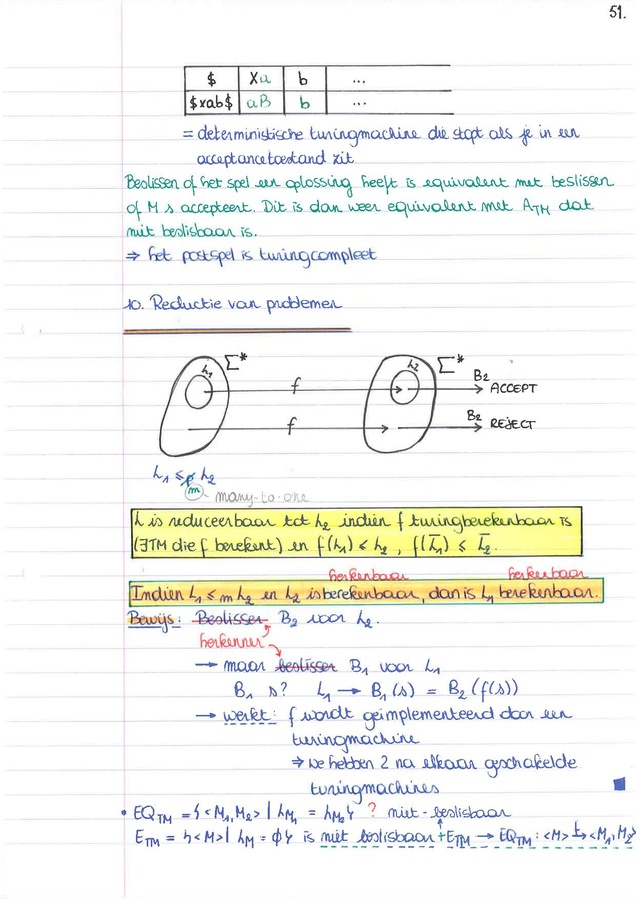 51.
$ Xa b ...
$xab$ aB b ...
= deterministische turingmachine die stopt als je in een
acceptancetoestand zit
Beslissen of het spel een oplossing heeft is equivalent met beslissen
of M s accepteert. Dit is dan weer equivalent met A_TM dat
niet beslisbaar is.
⇒ het postspel is turingcompleet
10. Reductie van problemen
L₁ Σ* f L₂ Σ* B₂ ACCEPT
f B₂ REJECT
L₁ ≤ L₂
m many-to-one
L is reduceerbaar tot L₂ indien f turingberekenbaar is
(∃TM die f berekent) en f(L₁) ≤ L₂, f(L̅₁) ≤ L̅₂.
herkenbaar herkenbaar
Indien L₁ ≤m L₂ en L₂ is berekenbaar, dan is L₁ berekenbaar.
Bewijs: Beslisser B₂ voor L₂.
herkenner
→ maar beslisser B₁ voor L₁
B₁ s? L₁ → B₁(s) = B₂(f(s))
→ werkt: f wordt geïmplementeerd door een
turingmachine
⇒ we hebben 2 na elkaar geschakelde
turingmachines
• EQ_TM = {<M₁,M₂> | L_M₁ = L_M₂} ? niet-beslisbaar
E_TM = {<M> | L_M = ϕ} is niet beslisbaar + E_TM → EQ_TM : <M> ↦ <M₁,M₂>